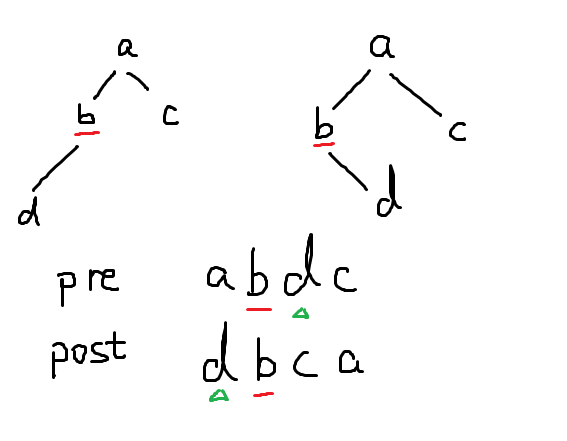 a a
b c b c
d d
pre a b d c
post d b c a